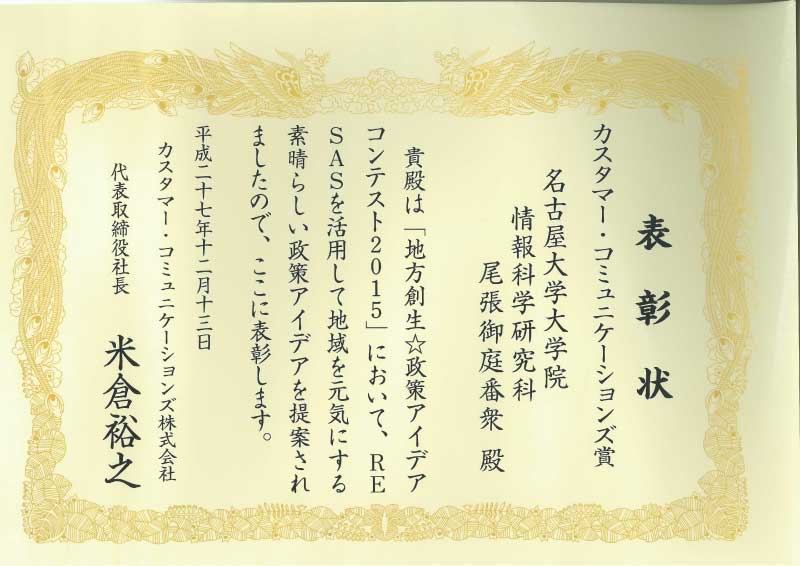 表彰状
カスタマー・コミュニケーションズ賞
名古屋大学大学院
情報科学研究科
尾張御庭番衆 殿
貴殿は「地方創生☆政策アイデア
コンテスト2015」において、RE
SASを活用して地域を元気にする
素晴らしい政策アイデアを提案され
ましたので、ここに表彰します。
平成二十七年十二月十三日
カスタマー・コミュニケーションズ株式会社
代表取締役社長 米倉裕之